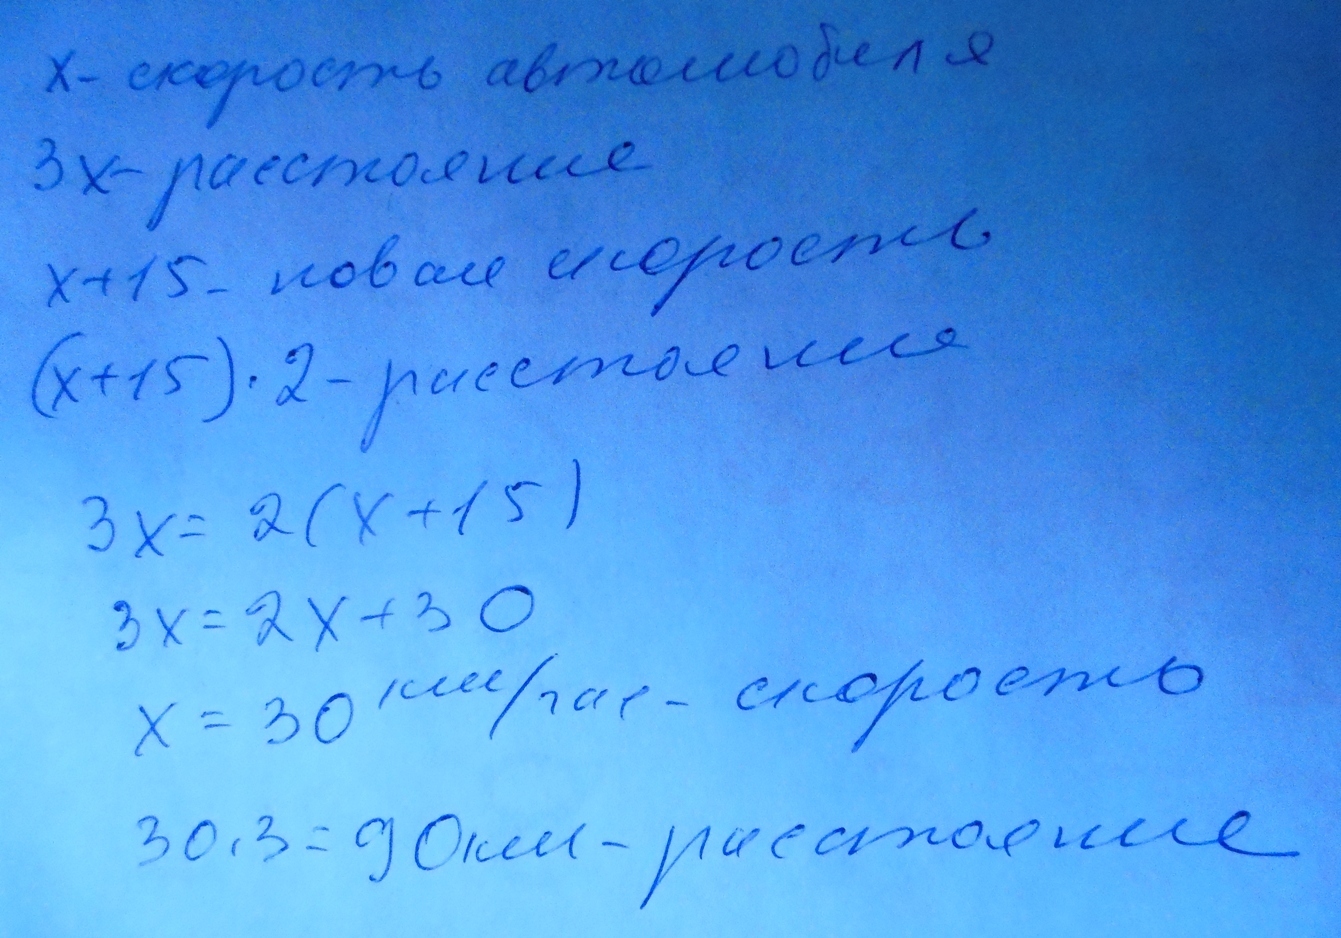 x- скорость автомобиля
3x- расстояние
x+15- новая скорость
(x+15)·2- расстояние
3x= 2(x+15)
3x=2x+30
x=30 км/час- скорость
30.3=90км- расстояние